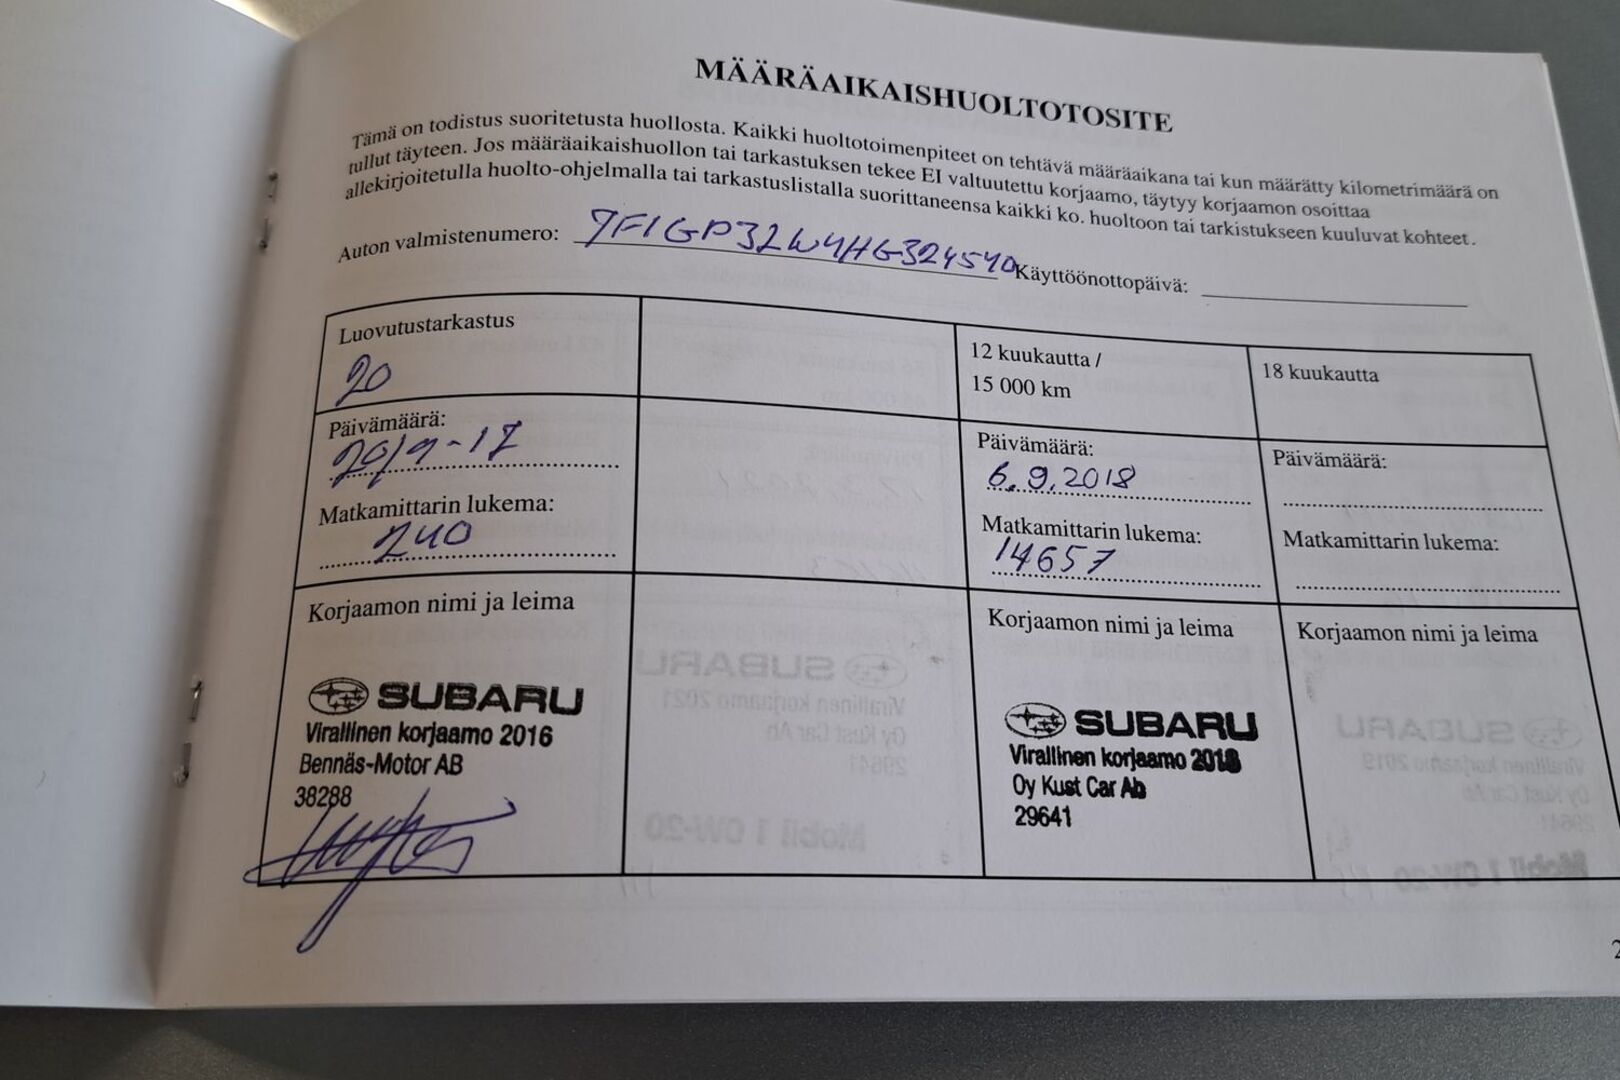 MÄÄRÄAIKAISHUOLTOTOSITE
Tämä on todistus suoritetusta huollosta. Kaikki huoltotoimenpiteet on tehtävä määräaikana tai kun määrätty kilometrimäärä on
tullut täyteen. Jos määräaikaishuollon tai tarkastuksen tekee EI valtuutettu korjaamo, täytyy korjaamon osoittaa
allekirjoitetulla huolto-ohjelmalla tai tarkastuslistalla suorittaneensa kaikki ko. huoltoon tai tarkistukseen kuuluvat kohteet.
Auton valmistenumero: Käyttöönottopäivä:
Luovutustarkastus
20
Päivämäärä:
20/9-17
Matkamittarin lukema:
240
Korjaamon nimi ja leima
SUBARU
Virallinen korjaamo 2016
Bennäs-Motor AB
38288
12 kuukautta /
15 000 km
Päivämäärä:
6.9.2018
Matkamittarin lukema:
14657
Korjaamon nimi ja leima
SUBARU
Virallinen korjaamo 2018
Oy Kust Car Ab
29641
18 kuukautta
Päivämäärä:
Matkamittarin lukema:
Korjaamon nimi ja leima